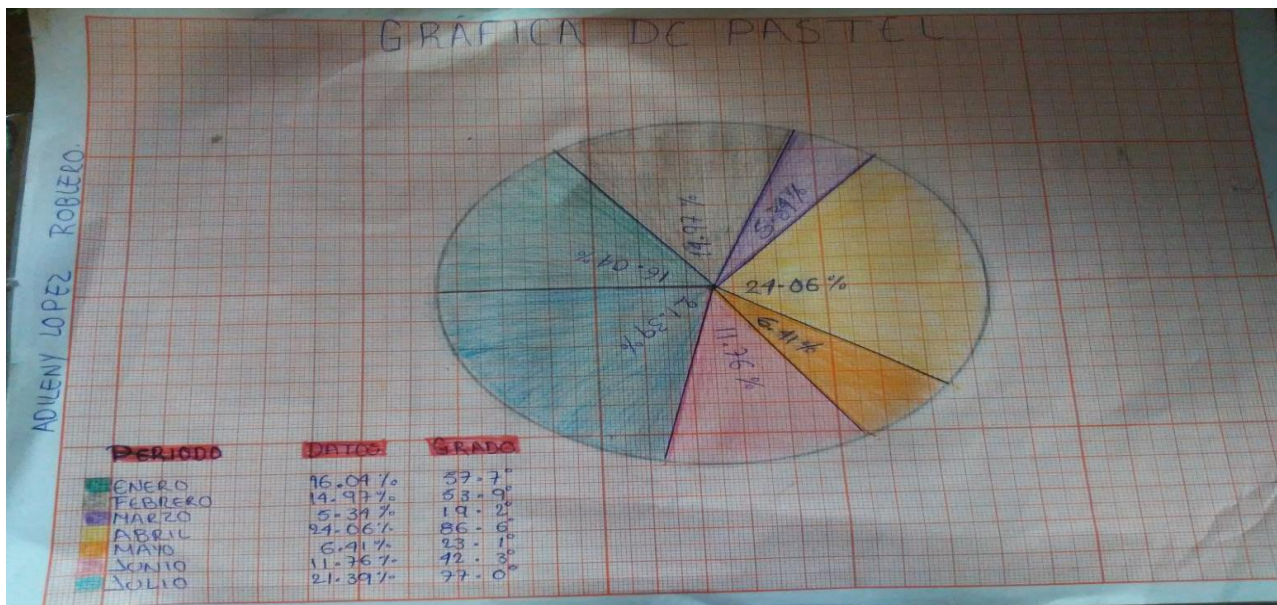 GRÁFICA DE PASTEL
ADILENY LOPEZ ROBLERO.
14.97%
5.34%
16.04%
24.06%
21.39%
6.41%
11.76%
PERIODO DATOS GRADO
ENERO 16.04% 57.7°
FEBRERO 14.97% 53.9°
MARZO 5.34% 19.2°
ABRIL 24.06% 86.6°
MAYO 6.41% 23.1°
JUNIO 11.76% 42.3°
JULIO 21.39% 77.0°